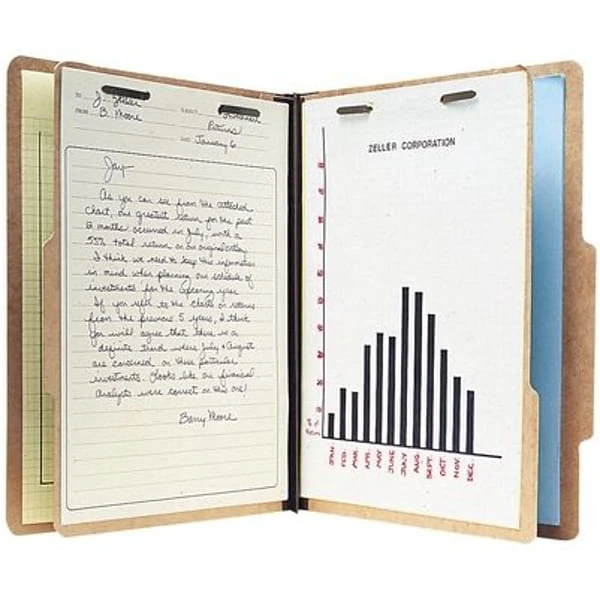 TO J. Zeller
FROM B. Moore
SUBJECT Investment
Returns
DATE January 6
Jay-
As you can see from the attached
chart, our greatest return for the past
12 months occurred in July, with a
55% total return on our original outlay.
I think we need to keep this information
in mind when planning our schedule of
investments for the upcoming year.
If you refer to the charts on returns
from the previous 5 years, I think
you will agree that there is a
definite trend where July & August
are concerned on these particular
investments. Looks like our financial
analysts were correct on this one!
Barry Moore
ZELLER CORPORATION
JAN
FEB.
MAR.
APR.
MAY
JUNE
JULY
AUG.
SEPT.
OCT.
NOV.
DEC.